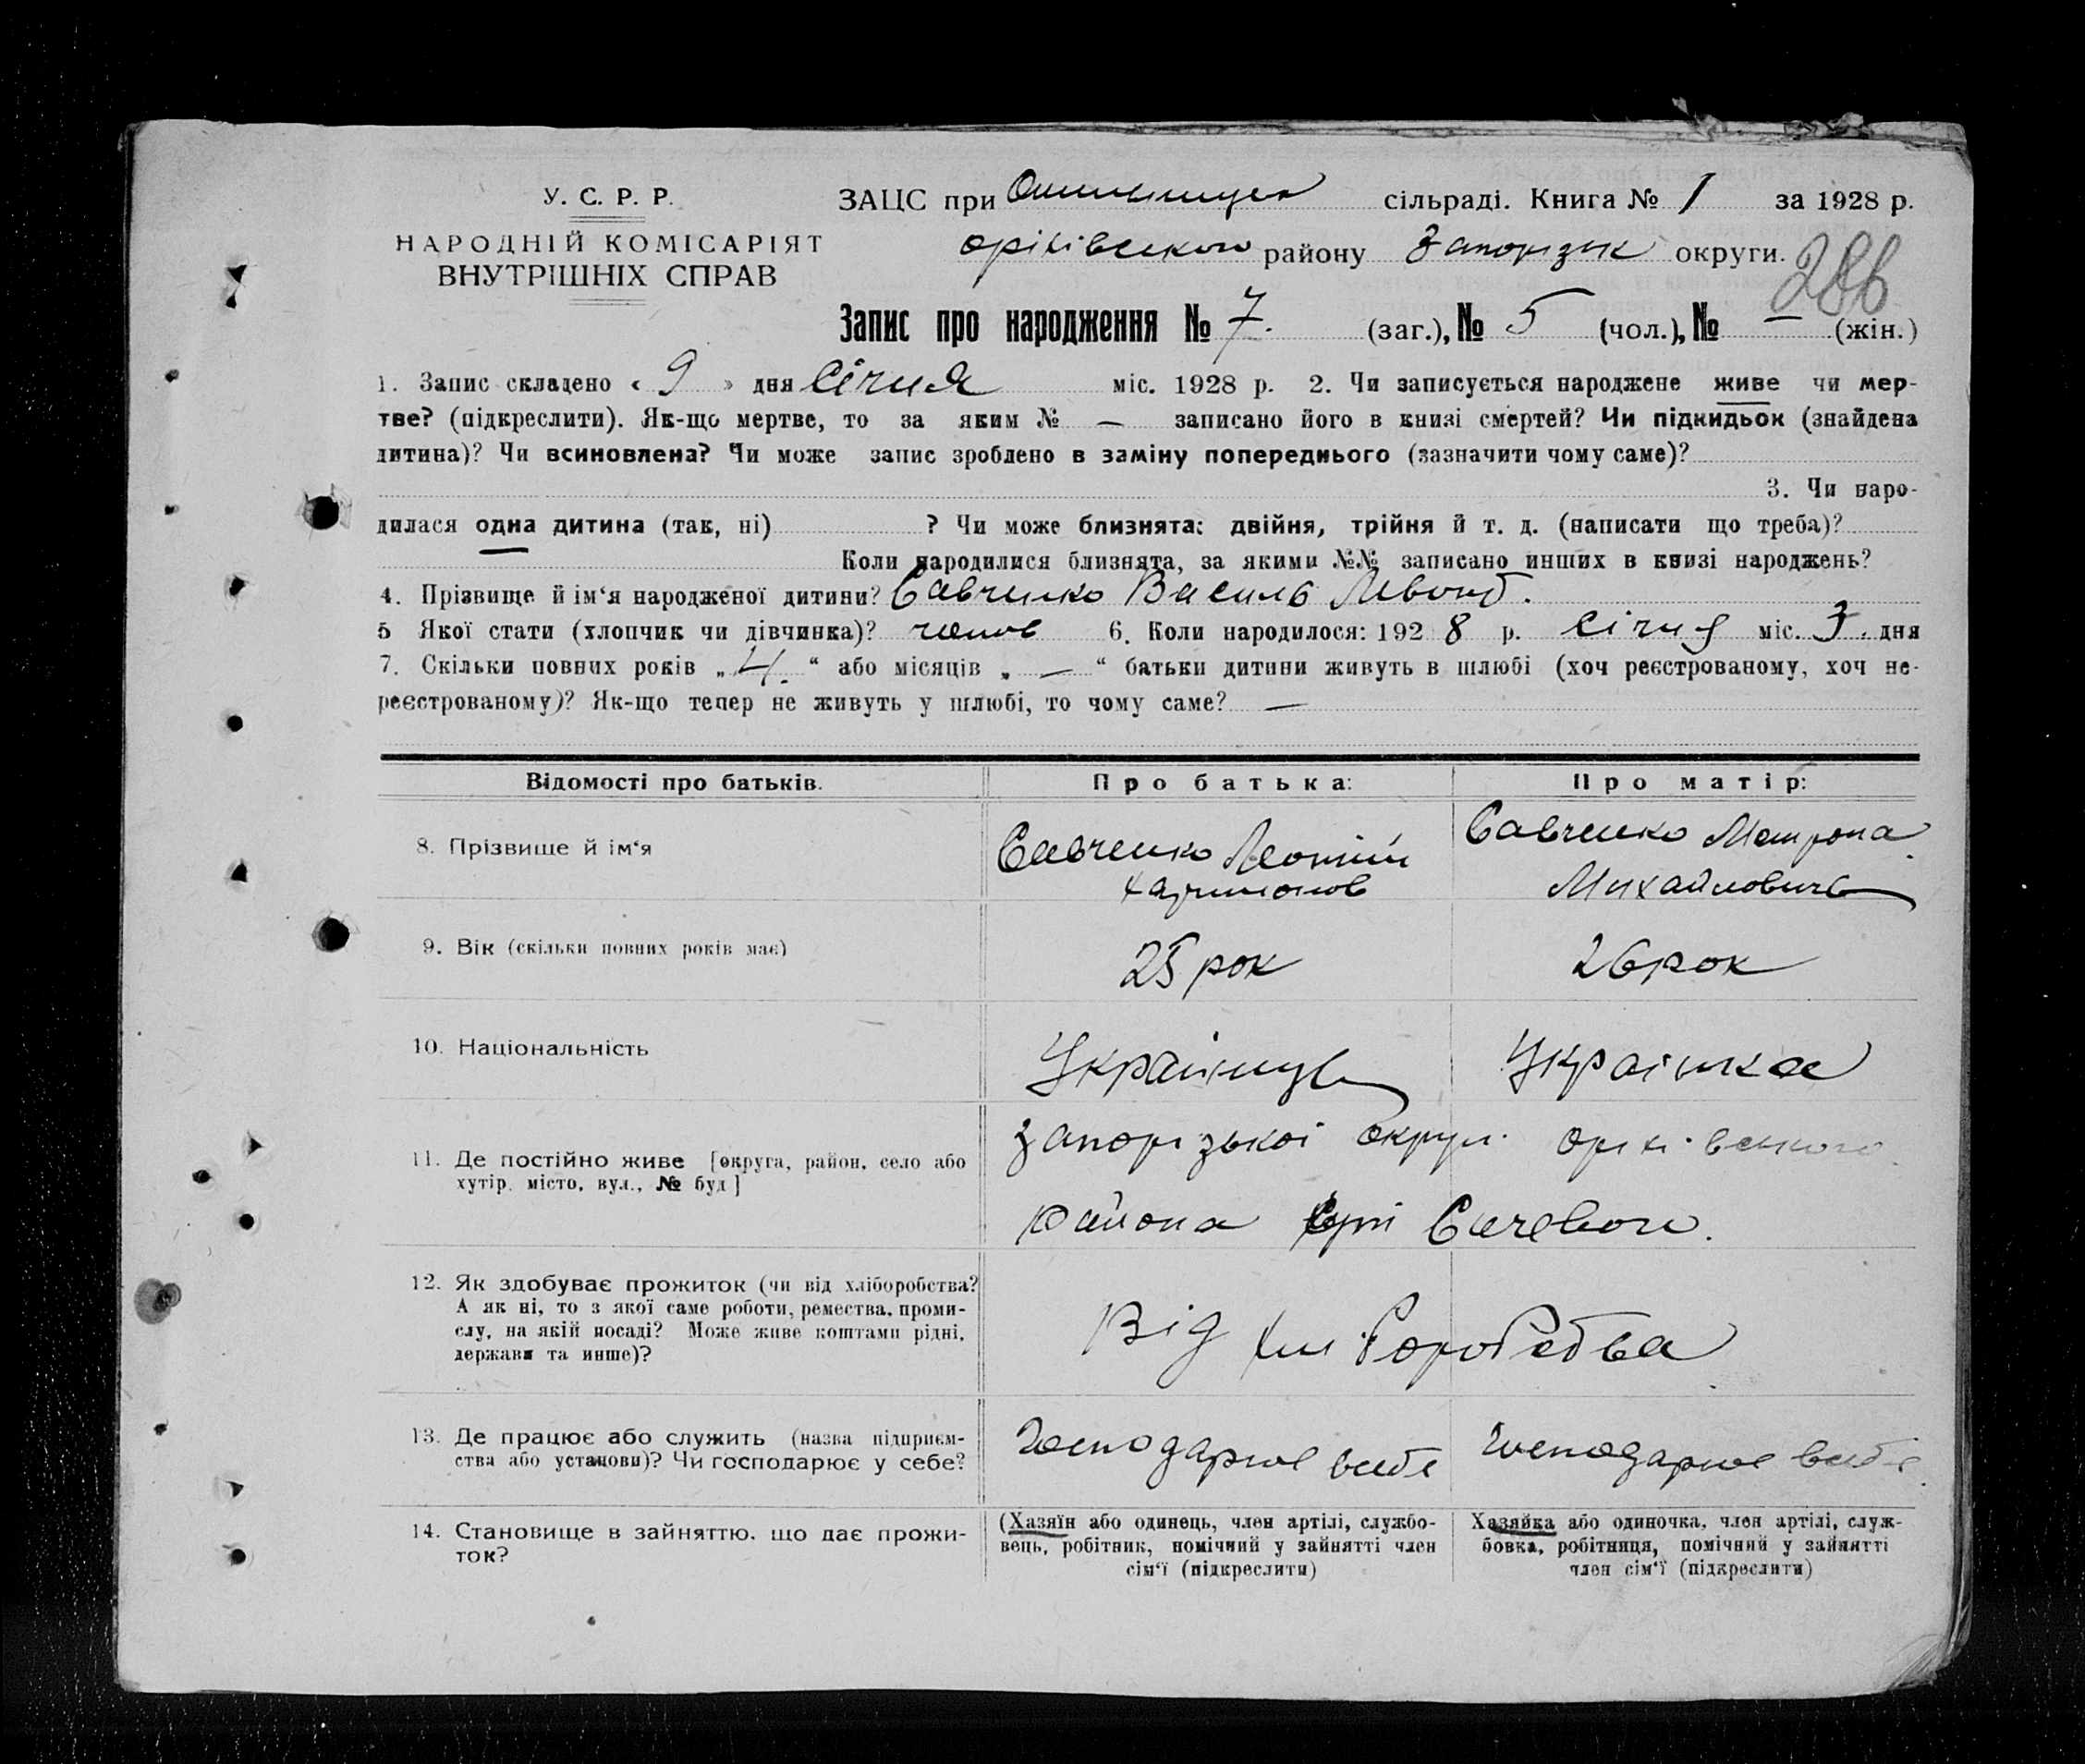 У. С. Р. Р.
НАРОДНІЙ КОМІСАРІЯТ
ВНУТРІШНІХ СПРАВ
ЗАЦС при сільраді. Книга № 1 за 1928 р.
оріхівського району Запорізьк округи.
286
Запис про народження № 7. (заг.), № 5 (чол.), № — (жін.)
1. Запис складено « 9 » дня Січня міс. 1928 р. 2. Чи записується народжене живе чи мер-
тве? (підкреслити). Як-що мертве, то за яким № — записано його в книзі смертей? Чи підкидьок (знайдена
дитина)? Чи всиновлена? Чи може запис зроблено в заміну попереднього (зазначити чому саме)?
3. Чи наро-
дилася одна дитина (так, ні) ? Чи може близнята: двійня, трійня й т. д. (написати що треба)?
Коли народилися близнята, за якими №№ записано инших в книзі народжень?
4. Прізвище й ім‘я народженої дитини? Савченко Василь Левонт.
5 Якої стати (хлопчик чи дівчинка)? чолов 6. Коли народилося: 1928 р. Січня міс. 3. дня
7. Скільки повних років „ 4. “ або місяців „ — “ батьки дитини живуть в шлюбі (хоч реєстрованому, хоч не-
реєстрованому)? Як-що тепер не живуть у шлюбі, то чому саме? —
Відомості про батьків. Про батька: Про матір:
8. Прізвище й ім‘я
Савченко Леонтій
Харитонов
Савченко Мотрона
Михайловичь
9. Вік (скільки повних років має) 25 рок 26 рок
10. Національність Українць Українка
11. Де постійно живе [округа, район, село або
хутір, місто, вул., № буд]
Запорізької округи. Оріхівського
района
12. Як здобуває прожиток (чи від хліборобства?
А як ні, то з якої саме роботи, ремества, проми-
слу, на якій посаді? Може живе коштами рідні,
держави та инше)?
Від хліборобства
13. Де працює або служить (назва підприєм-
ства або установи)? Чи господарює у себе?
Господарює в себе Господарює в себе
14. Становище в зайняттю, що дає прожи-
ток?
(Хазяїн або одинець, член артілі, службо-
вець, робітник, помічний у зайнятті член
сім‘ї (підкреслити)
Хазяйка або одиночка, член артілі, служ-
бовка, робітниця, помічний у зайнятті
член сім‘ї (підкреслити)